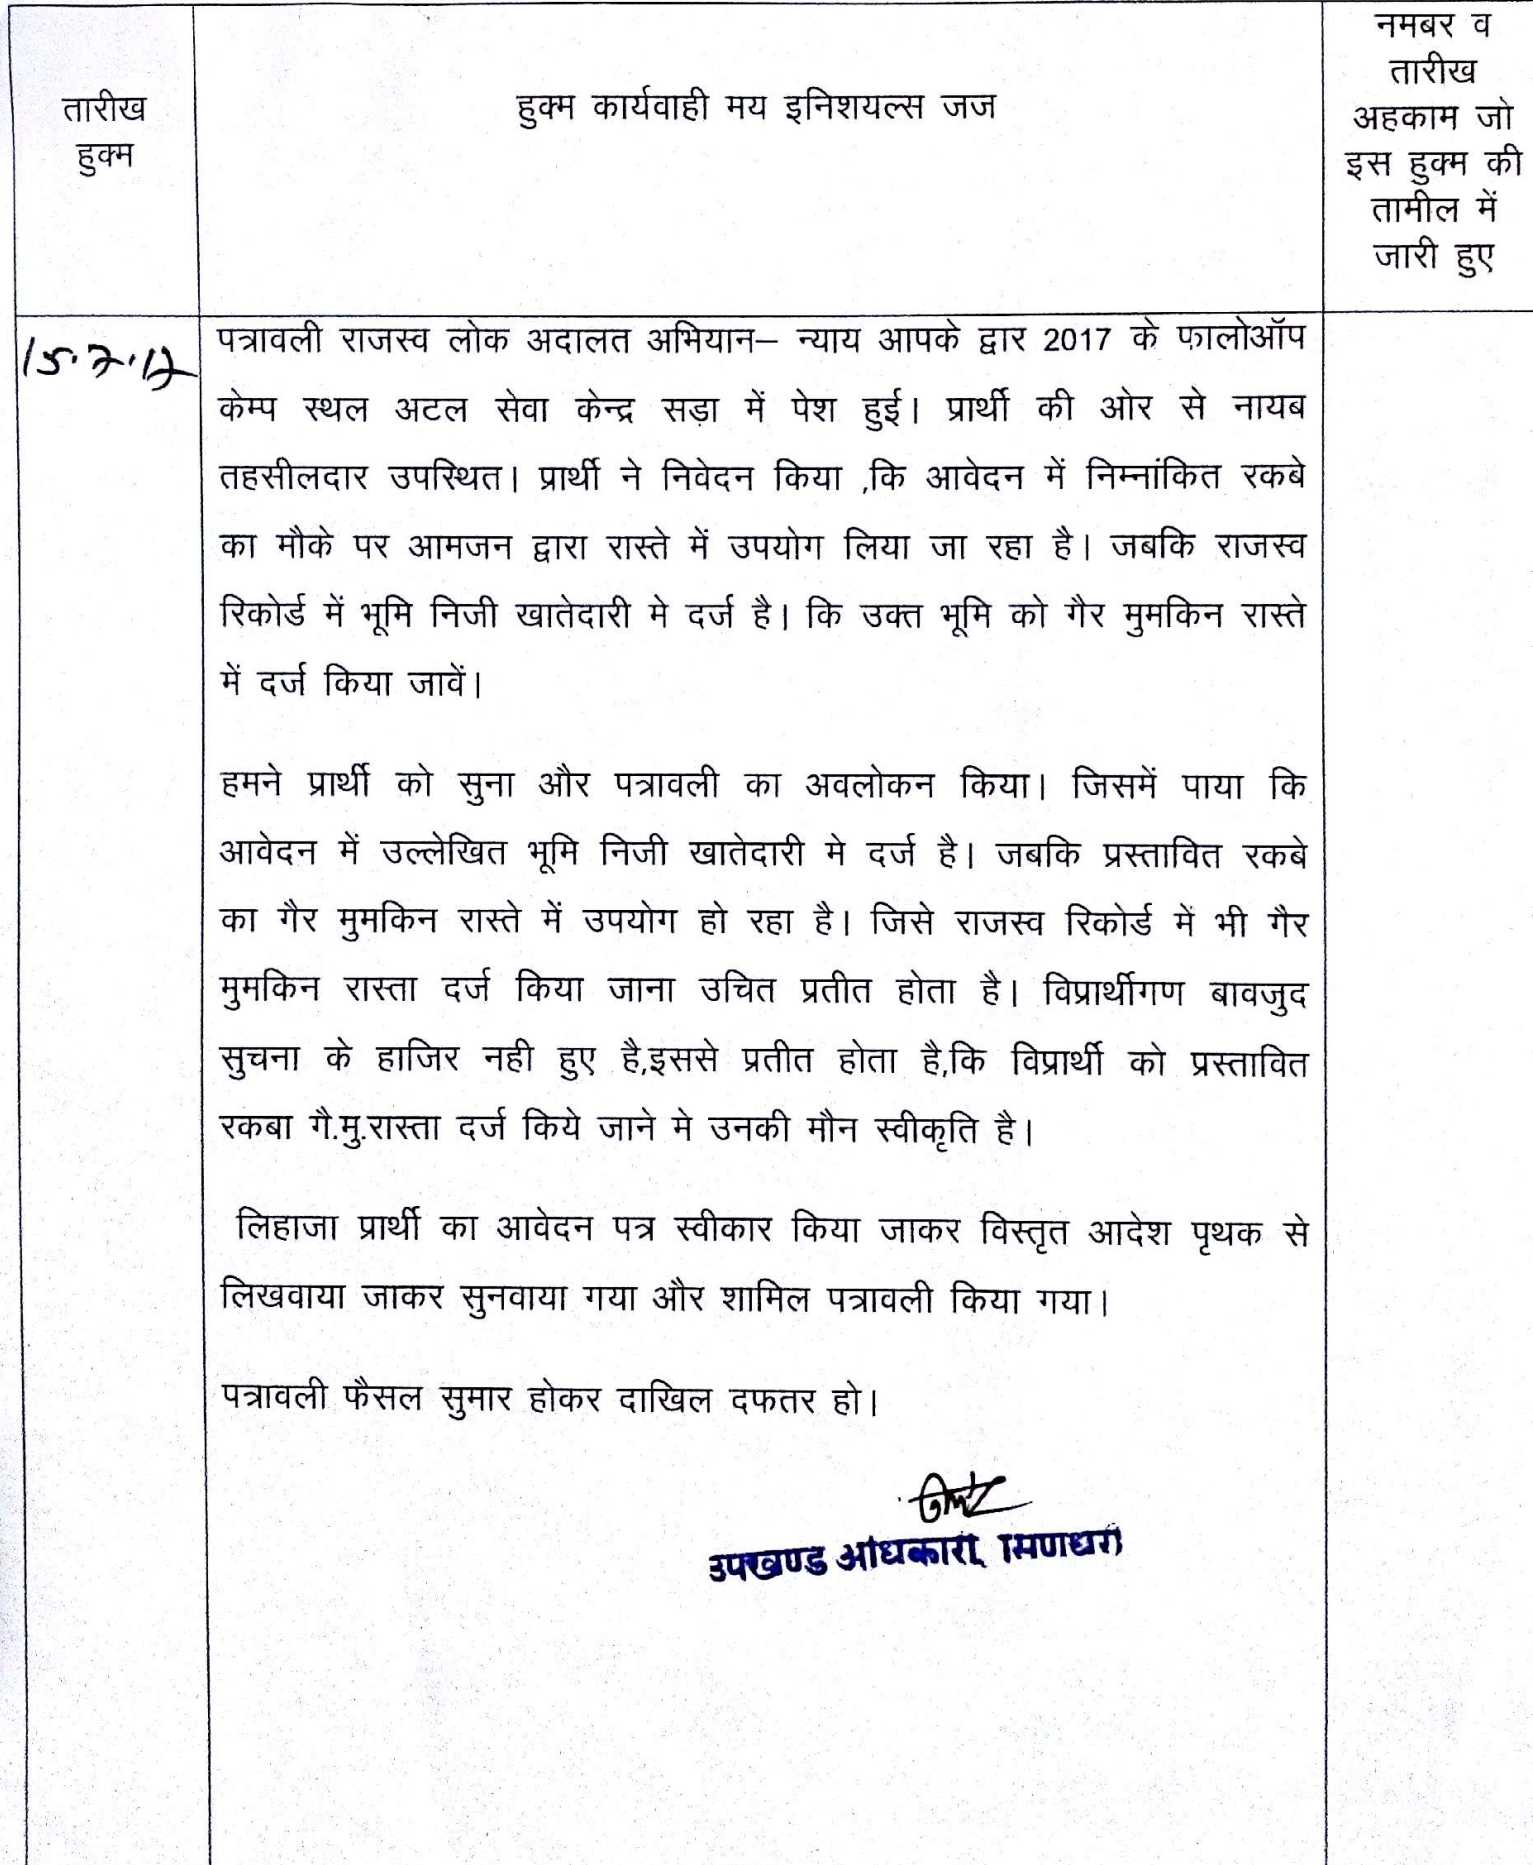 तारीख
हुक्म
हुक्म कार्यवाही मय इनिशयल्स जज
नमबर व
तारीख
अहकाम जो
इस हुक्म की
तामील में
जारी हुए
पत्रावली राजस्व लोक अदालत अभियान– न्याय आपके द्वार 2017 के फालोऑप
केम्प स्थल अटल सेवा केन्द्र सड़ा में पेश हुई। प्रार्थी की ओर से नायब
तहसीलदार उपस्थित। प्रार्थी ने निवेदन किया ,कि आवेदन में निम्नांकित रकबे
का मौके पर आमजन द्वारा रास्ते में उपयोग लिया जा रहा है। जबकि राजस्व
रिकोर्ड में भूमि निजी खातेदारी मे दर्ज है। कि उक्त भूमि को गैर मुमकिन रास्ते
में दर्ज किया जावें।
हमने प्रार्थी को सुना और पत्रावली का अवलोकन किया। जिसमें पाया कि
आवेदन में उल्लेखित भूमि निजी खातेदारी मे दर्ज है। जबकि प्रस्तावित रकबे
का गैर मुमकिन रास्ते में उपयोग हो रहा है। जिसे राजस्व रिकोर्ड में भी गैर
मुमकिन रास्ता दर्ज किया जाना उचित प्रतीत होता है। विप्रार्थीगण बावजुद
सुचना के हाजिर नही हुए है,इससे प्रतीत होता है,कि विप्रार्थी को प्रस्तावित
रकबा गै.मु.रास्ता दर्ज किये जाने मे उनकी मौन स्वीकृति है।
लिहाजा प्रार्थी का आवेदन पत्र स्वीकार किया जाकर विस्तृत आदेश पृथक से
लिखवाया जाकर सुनवाया गया और शामिल पत्रावली किया गया।
पत्रावली फैसल सुमार होकर दाखिल दफतर हो।
उपखण्ड अधिकारी,